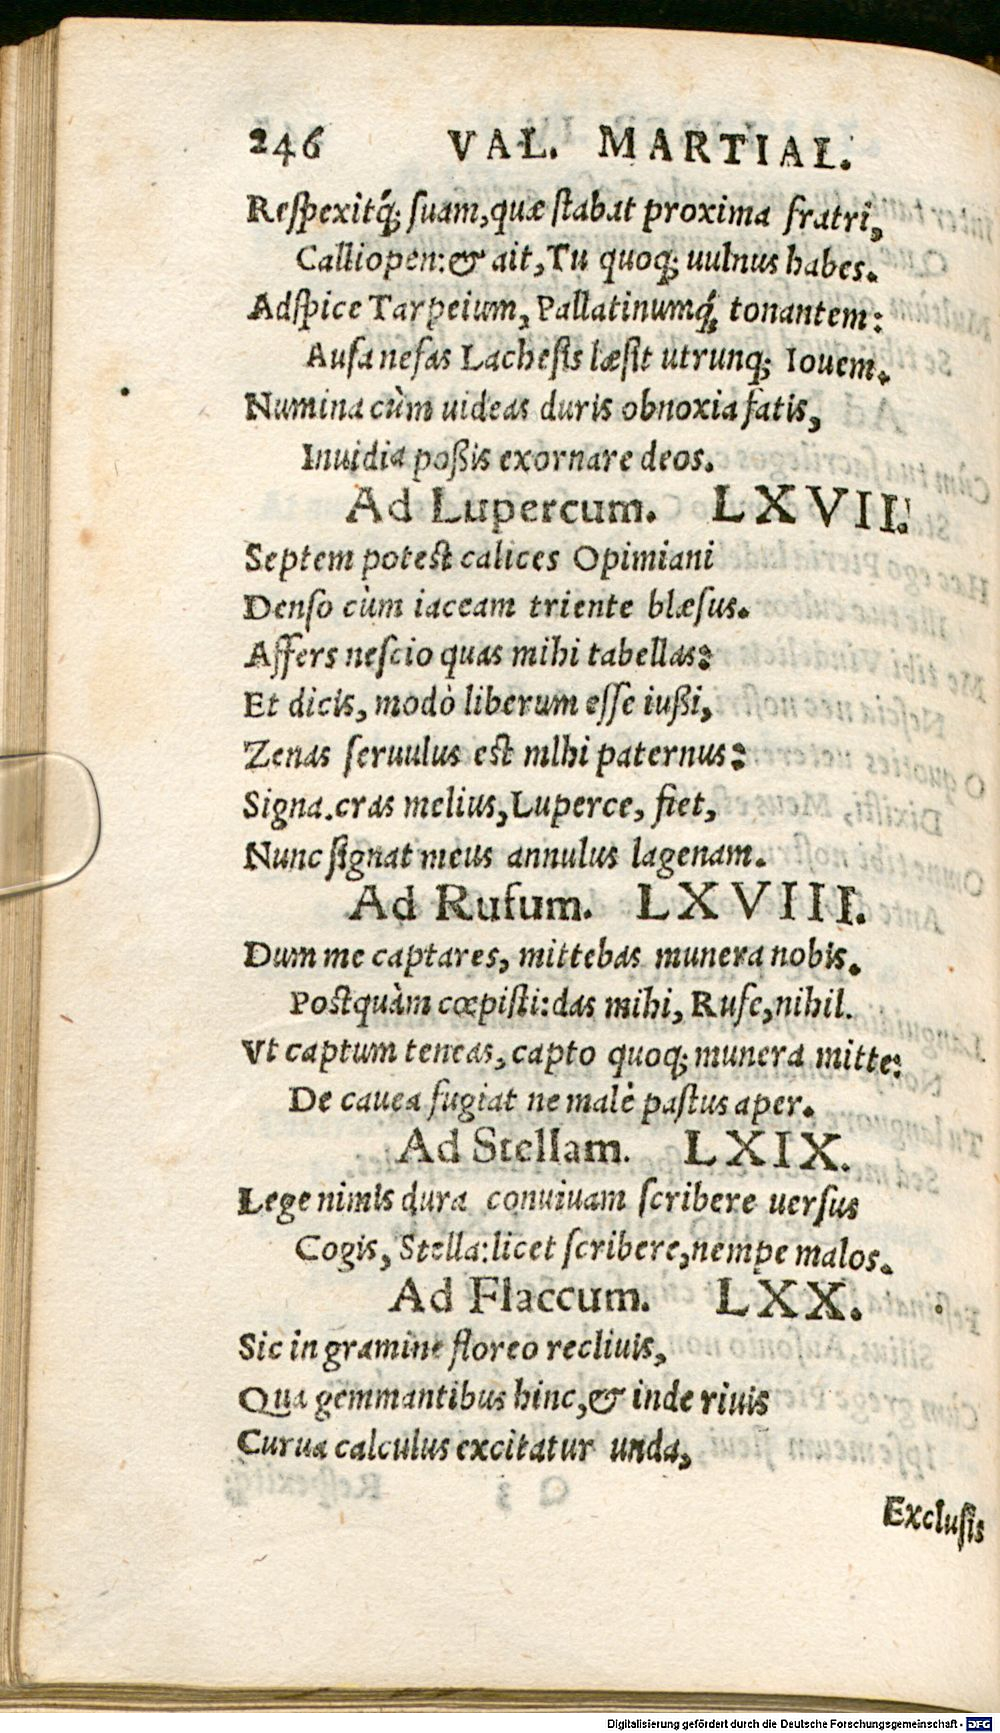 246 VAL. MARTIAL.
Reſpexitq́; ſuam,quæ ſtabat proxima fratri,
Calliopen:& ait,Tu quoq; uulnus habes.
Adſpice Tarpeium, Pallatinumq́; tonantem:
Auſa nefas Lacheſis læſit utrunq; Iouem.
Numina cùm uideas duris obnoxia fatis,
Inuidia poßis exornare deos.
Ad Lupercum. LXVII.
Septem poteſt calices Opimiani
Denſo cùm iaceam triente blæſus.
Affers neſcio quas mihi tabellas:
Et dicis, modò liberum eſſe iußi,
Zenas ſeruulus eſt mlhi paternus:
Signa.cras melius,Luperce, fiet,
Nunc ſignat meus annulus lagenam.
Ad Rufum. LXVIII.
Dum me captares, mittebas munera nobis.
Poſtquàm cœpiſti:das mihi, Rufe,nihil.
Vt captum teneas, capto quoq; munera mitte:
De cauea fugiat ne malè paſtus aper.
Ad Stellam. LXIX.
Lege nimis dura conuiuam ſcribere uerſus
Cogis, Stella:licet ſcribere,nempe malos.
Ad Flaccum. LXX.
Sic in gramine floreo recliuis,
Qua gemmantibus hinc,& inde riuis
Curua calculus excitatur unda,
Excluſis
Digitalisierung gefördert durch die Deutsche Forschungsgemeinschaft - DFG